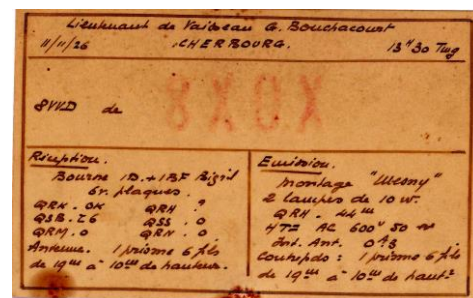 Lieutenant de Vaisseau G. Bouchacourt
11/11/26 CHERBOURG. 13ʰ30 Tmg
8VVD de 8XOX
Réception.
Bourne 1D.+1BF Bigril
br. plaques.
QRK. OK QRH ?
QSB. T6 QSS. 0
QRM. 0 QRN. 0
Antenne. 1 prisme 6 fils
de 19ᵐ à 10ᵐ de hauteur.
Emission.
montage "Mesny"
2 lampes de 10 w.
QRH. 44ᵐ
HT= AC 600ᵛ 50
Int. Ant. 0ᴬ3
Contrepds: 1 prisme 6 fils
de 19ᵐ à 10ᵐ de haut.ʳ